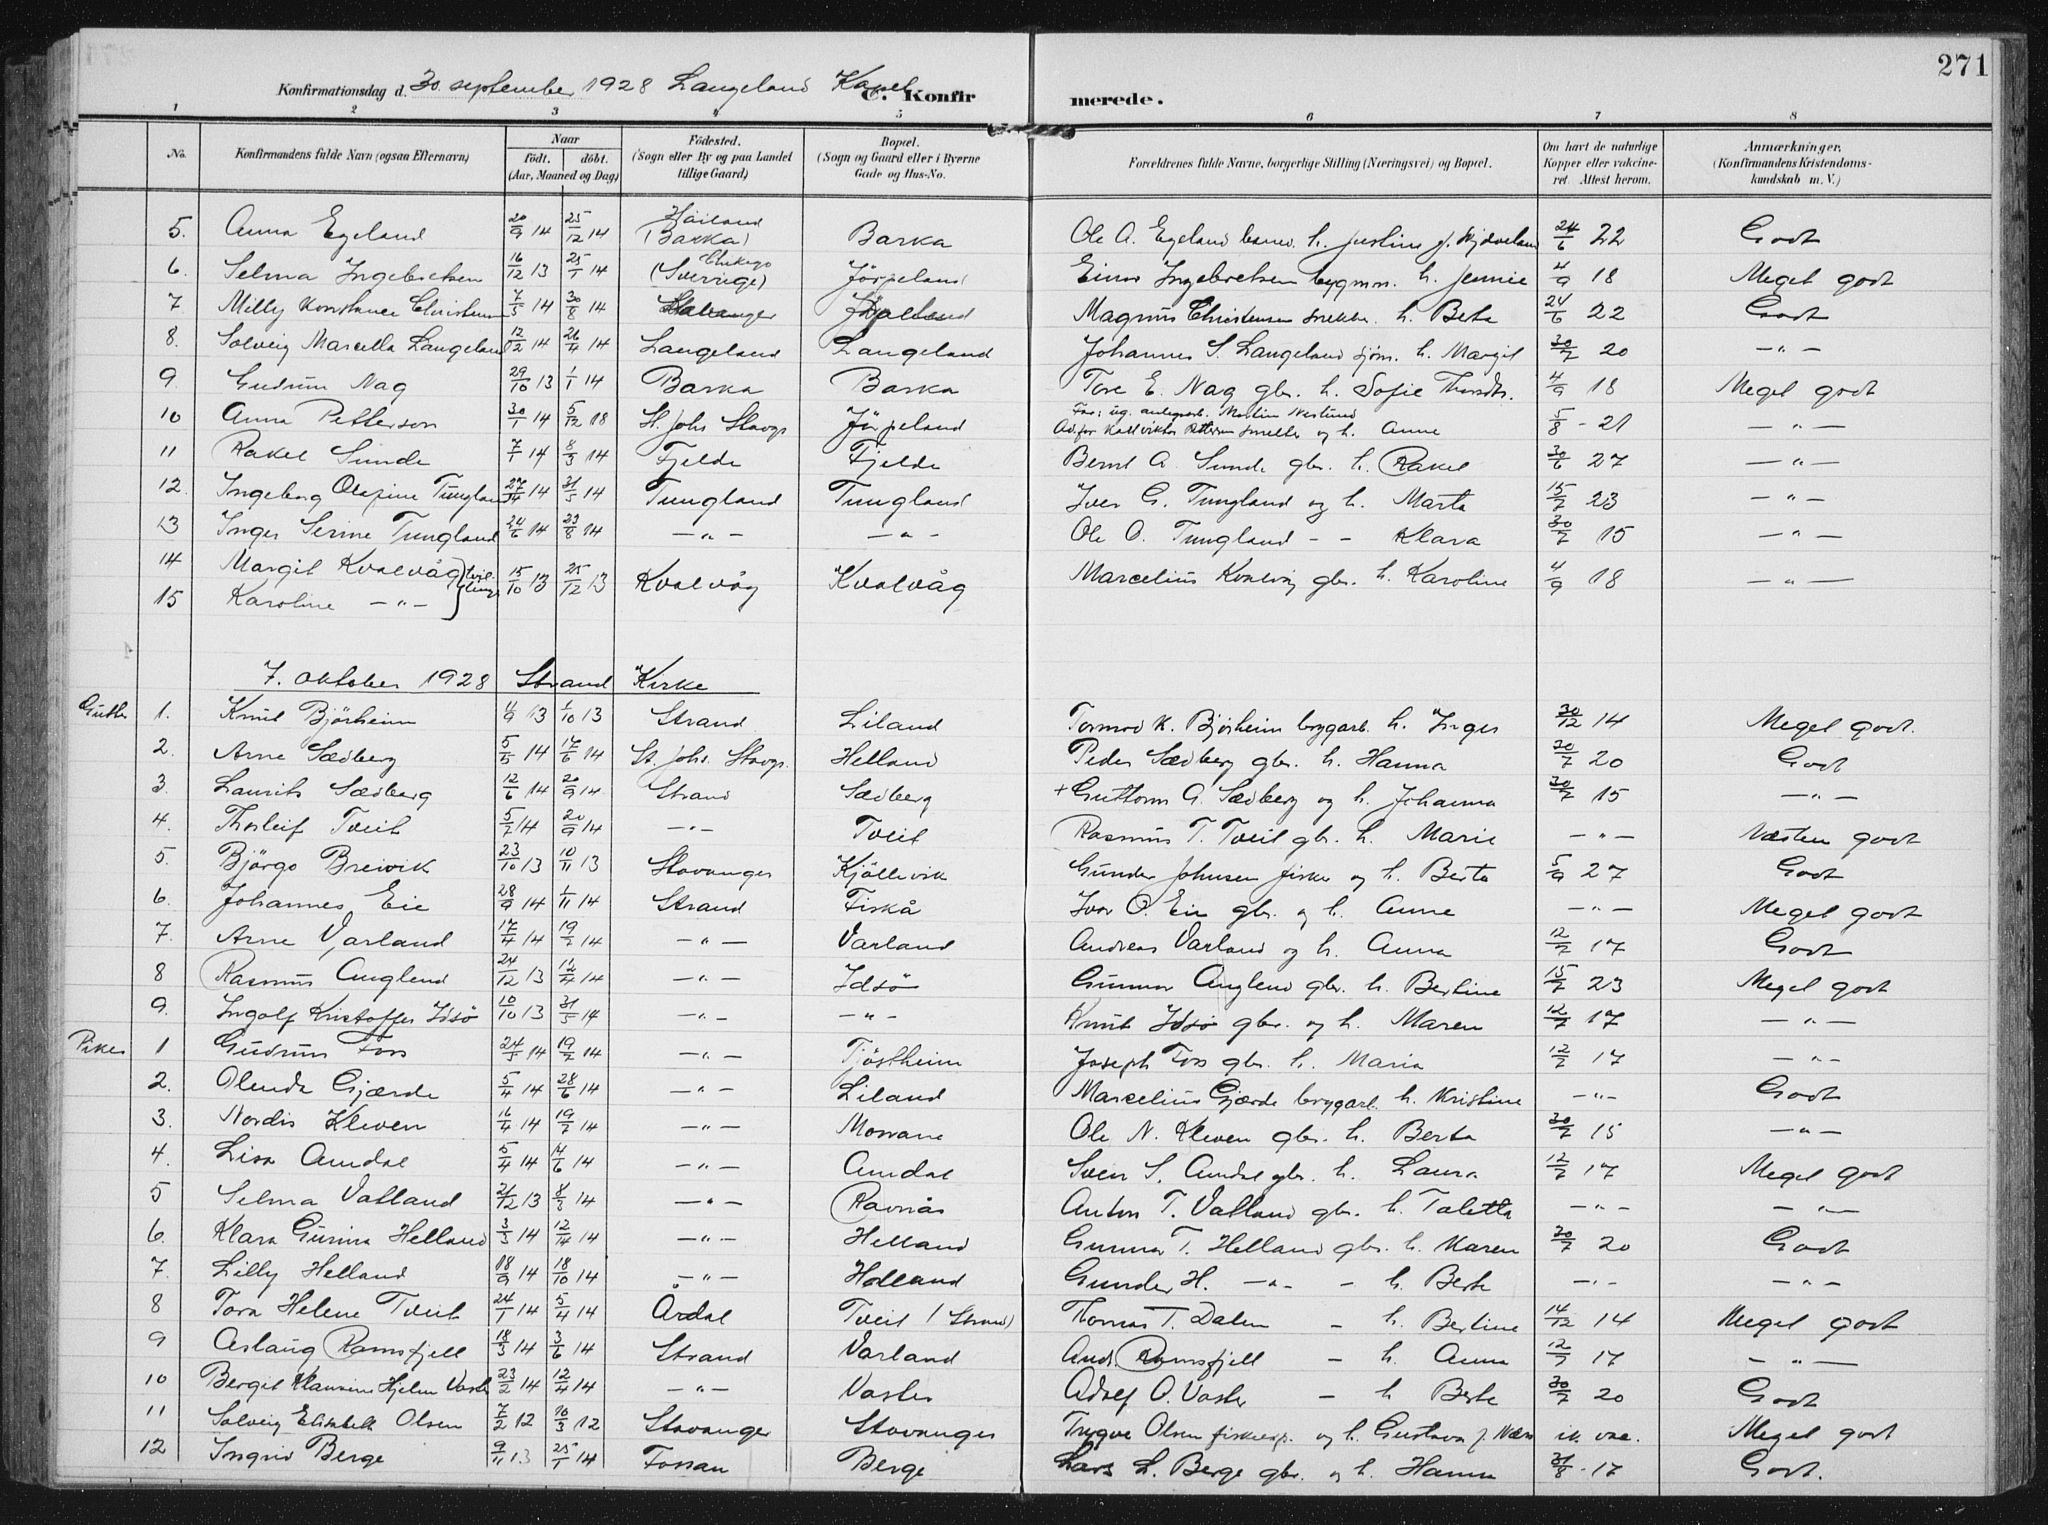 271
Konfirmationsdag d. 30 september 1928 Langeland Kapel
C. Konfirmerede.
1 2 3 4 5 6 7 8
No. Konfirmandens fulde Navn (ogsaa Efternavn) Naar födt. döbt. (Aar, Maaned og Dag) Födested. (Sogn eller By og paa Landet tillige Gaard) Bopæl. (Sogn og Gaard eller i Byerne Gade og Hus-No. Forældrenes fulde Navne, borgerlige Stilling (Næringsvei) og Bopæl. Om havt de naturlige Kopper eller vakcineret. Attest herom. Anmærkninger. (Konfirmandens Kristendomskundskab m. V.)
5. Anna Egeland 20/9 14 25/12 14 (Barka) Barka Ole A. Egeland h. Justine 24/6 22 Godt
6. Selma Ingebretsen 16/12 13 25/1 14 Chikago (Sverrige) Jörpeland Einar Ingebretsen bygm. h. Jennie 4/9 18 Meget godt
7 Milly Konstance Christensen 7/5 14 30/8 14 Stavanger Jörpeland Magnus Christensen snekker. h. Berta 24/6 22 Godt
8. Solveig Marcella Langeland 12/2 14 26/4 14 Langeland Langeland Johannes S. Langeland sjöm. h. Margit 30/7 20 — " —
9. Gudrun Nag 29/10 13 1/1 14 Barka Barka Tore E. Nag gbr. h. Sofie Thorsdtr. 4/9 18 Meget godt
10 Anna Petterson 30/1 14 5/12 18 St. Johs Stavgr Jörpeland Far: ug. anlegsarb. Martin Naslund
Ad.far Karl Viktor Petterson smelter og h. Anne 5/8 - 21 — " —
11 Rakel Sunde 7/1 14 8/3 14 Fjelde Fjelde Bernt A. Sunde gbr. h. Rakel 30/6 27 — " —
12. Ingeborg Olufine Tungland 27/4 14 31/5 14 Tungland Tungland Iver G. Tungland og h. Marta 15/7 23 — " —
13 Inger Serine Tungland 24/6 14 23/8 14 — " — — " — Ole O. Tungland - - Klara 30/7 15 — " —
14 Margit Kvalvåg } tvillinger 15/10 13 25/12 13 Kvalvåg Kvalvåg Marcelius Kvalvåg gbr. h. Karoline 4/9 18 — " —
15 Karoline — " —
7. oktober 1928 Strand Kirke
Gutter 1. Knut Bjørheim 4/9 13 1/10 13 Strand Liland Tormod K. Bjørheim bryggarb. h. Inger 30/12 14 Meget godt.
2. Arne Sædberg 5/5 14 17/6 14 St. Johs. Stavgr. Helland Peder Sædberg gbr. h. Hanna 30/7 20 Godt
3. Laurits Sædberg 12/6 14 20/9 14 Strand Sædberg + Guttorm G. Sædberg og h. Johanna 30/7 15 — " —
4. Thorleif Tveit 5/7 14 20/9 14 — " — Tveit Rasmus T. Tveit gbr. h. Marie — " — Næsten godt
5. Bjørgo Breivik 23/10 13 10/11 13 Stavanger Kjöllevik Gunder Johnsen fisker og h. Berta 5/9 27 Godt
6. Johannes Eie 28/9 14 1/11 14 Strand Fiskå Ivar O. Eie gbr. og h. Anne — " — Meget godt
7. Arne Varland 17/4 14 19/7 14 — " — Varland Andreas Varland og h. Anna 12/7 17 Godt
8 Rasmus Anglend 24/12 13 13/4 14 — " — Idsø Gunnar Anglend gbr. h. Bertine 15/7 23 Meget godt
9. Ingolf Kristoffer Idsø 10/10 13 31/5 14 — " — — " — Knut Idsø gbr. og h. Maren 12/7 17 — " —
Piker 1 Gudrun Foss 24/5 14 19/7 14 — " — Tjöstheim Joseph Foss gbr. h. Maria 12/7 17 — " —
2. Olende Gjærde 5/4 14 28/6 14 — " — Liland Marcelius Gjærde bryggarb. h. Kristine — " — Godt
3. Nordis Kleven 16/4 14 19/7 14 — " — Mosvane Ole N. Kleven gbr. h. Berta 30/7 15 — " —
4. Lisa Amdal 5/4 14 14/6 14 — " — Amdal Sven S. Amdal gbr. h. Laura 12/7 17 Meget godt
5 Selma Vatland 21/12 13 8/3 14 — " — Ravnås Anton T. Vatland gbr. h. Taletta — " — — " —
6. Klara Gurina Helland 3/3 14 12/4 14 — " — Helland Gunnar T. Helland gbr. h. Karen 30/7 20 Godt
7. Lilly Helland 18/9 14 18/10 14 — " — Helland Gunder H. — " — - h. Berte — " — — " —
8 Tora Helene Tveit 24/1 14 5/4 14 Årdal Tveit (Strand) Thomas T. Dalen - h. Bertine 14/12 14 Meget godt
9 Aslaug Ramsfjell 18/3 14 3/6 14 Strand Varland And. Ramsfjell - h. Anna 12/7 17 — " —
10 Bergit Klausine Hjelm Vaster 23/2 14 12/4 14 — " — Vaster Adolf O. Vaster - h Berte 30/7 20 Godt
11 Solveig Elisabeth Olsen 7/2 12 10/3 12 Stavanger Stavanger Trygve Olsen og h. Gustava f. Næss ik. vac. Meget godt
12 Ingrid Berge 9/11 13 25/1 14 Fossan Berge Lars L. Berge gbr. og h. Hanna 31/8 - 17 Godt.